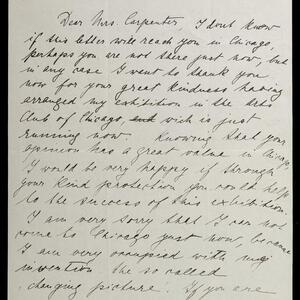 Dear Mrs. Carpenter I dont know
if this letter will reach you in Chicago,
perhaps you are not there just now, but
in any case I went to thank you
now for your great kindness having
arranged my exhibition in the Arts
Club of Chicago, and wich is just
running now. Knowing that your
openion has a great value in Chicago
I would be very happy if through
your kind protection you could help
to the success of this exhibition.
I am very sorry that I can not
come to Chicago just now, because
I am very occupied with my
invention the so called
„changing picture". If you are